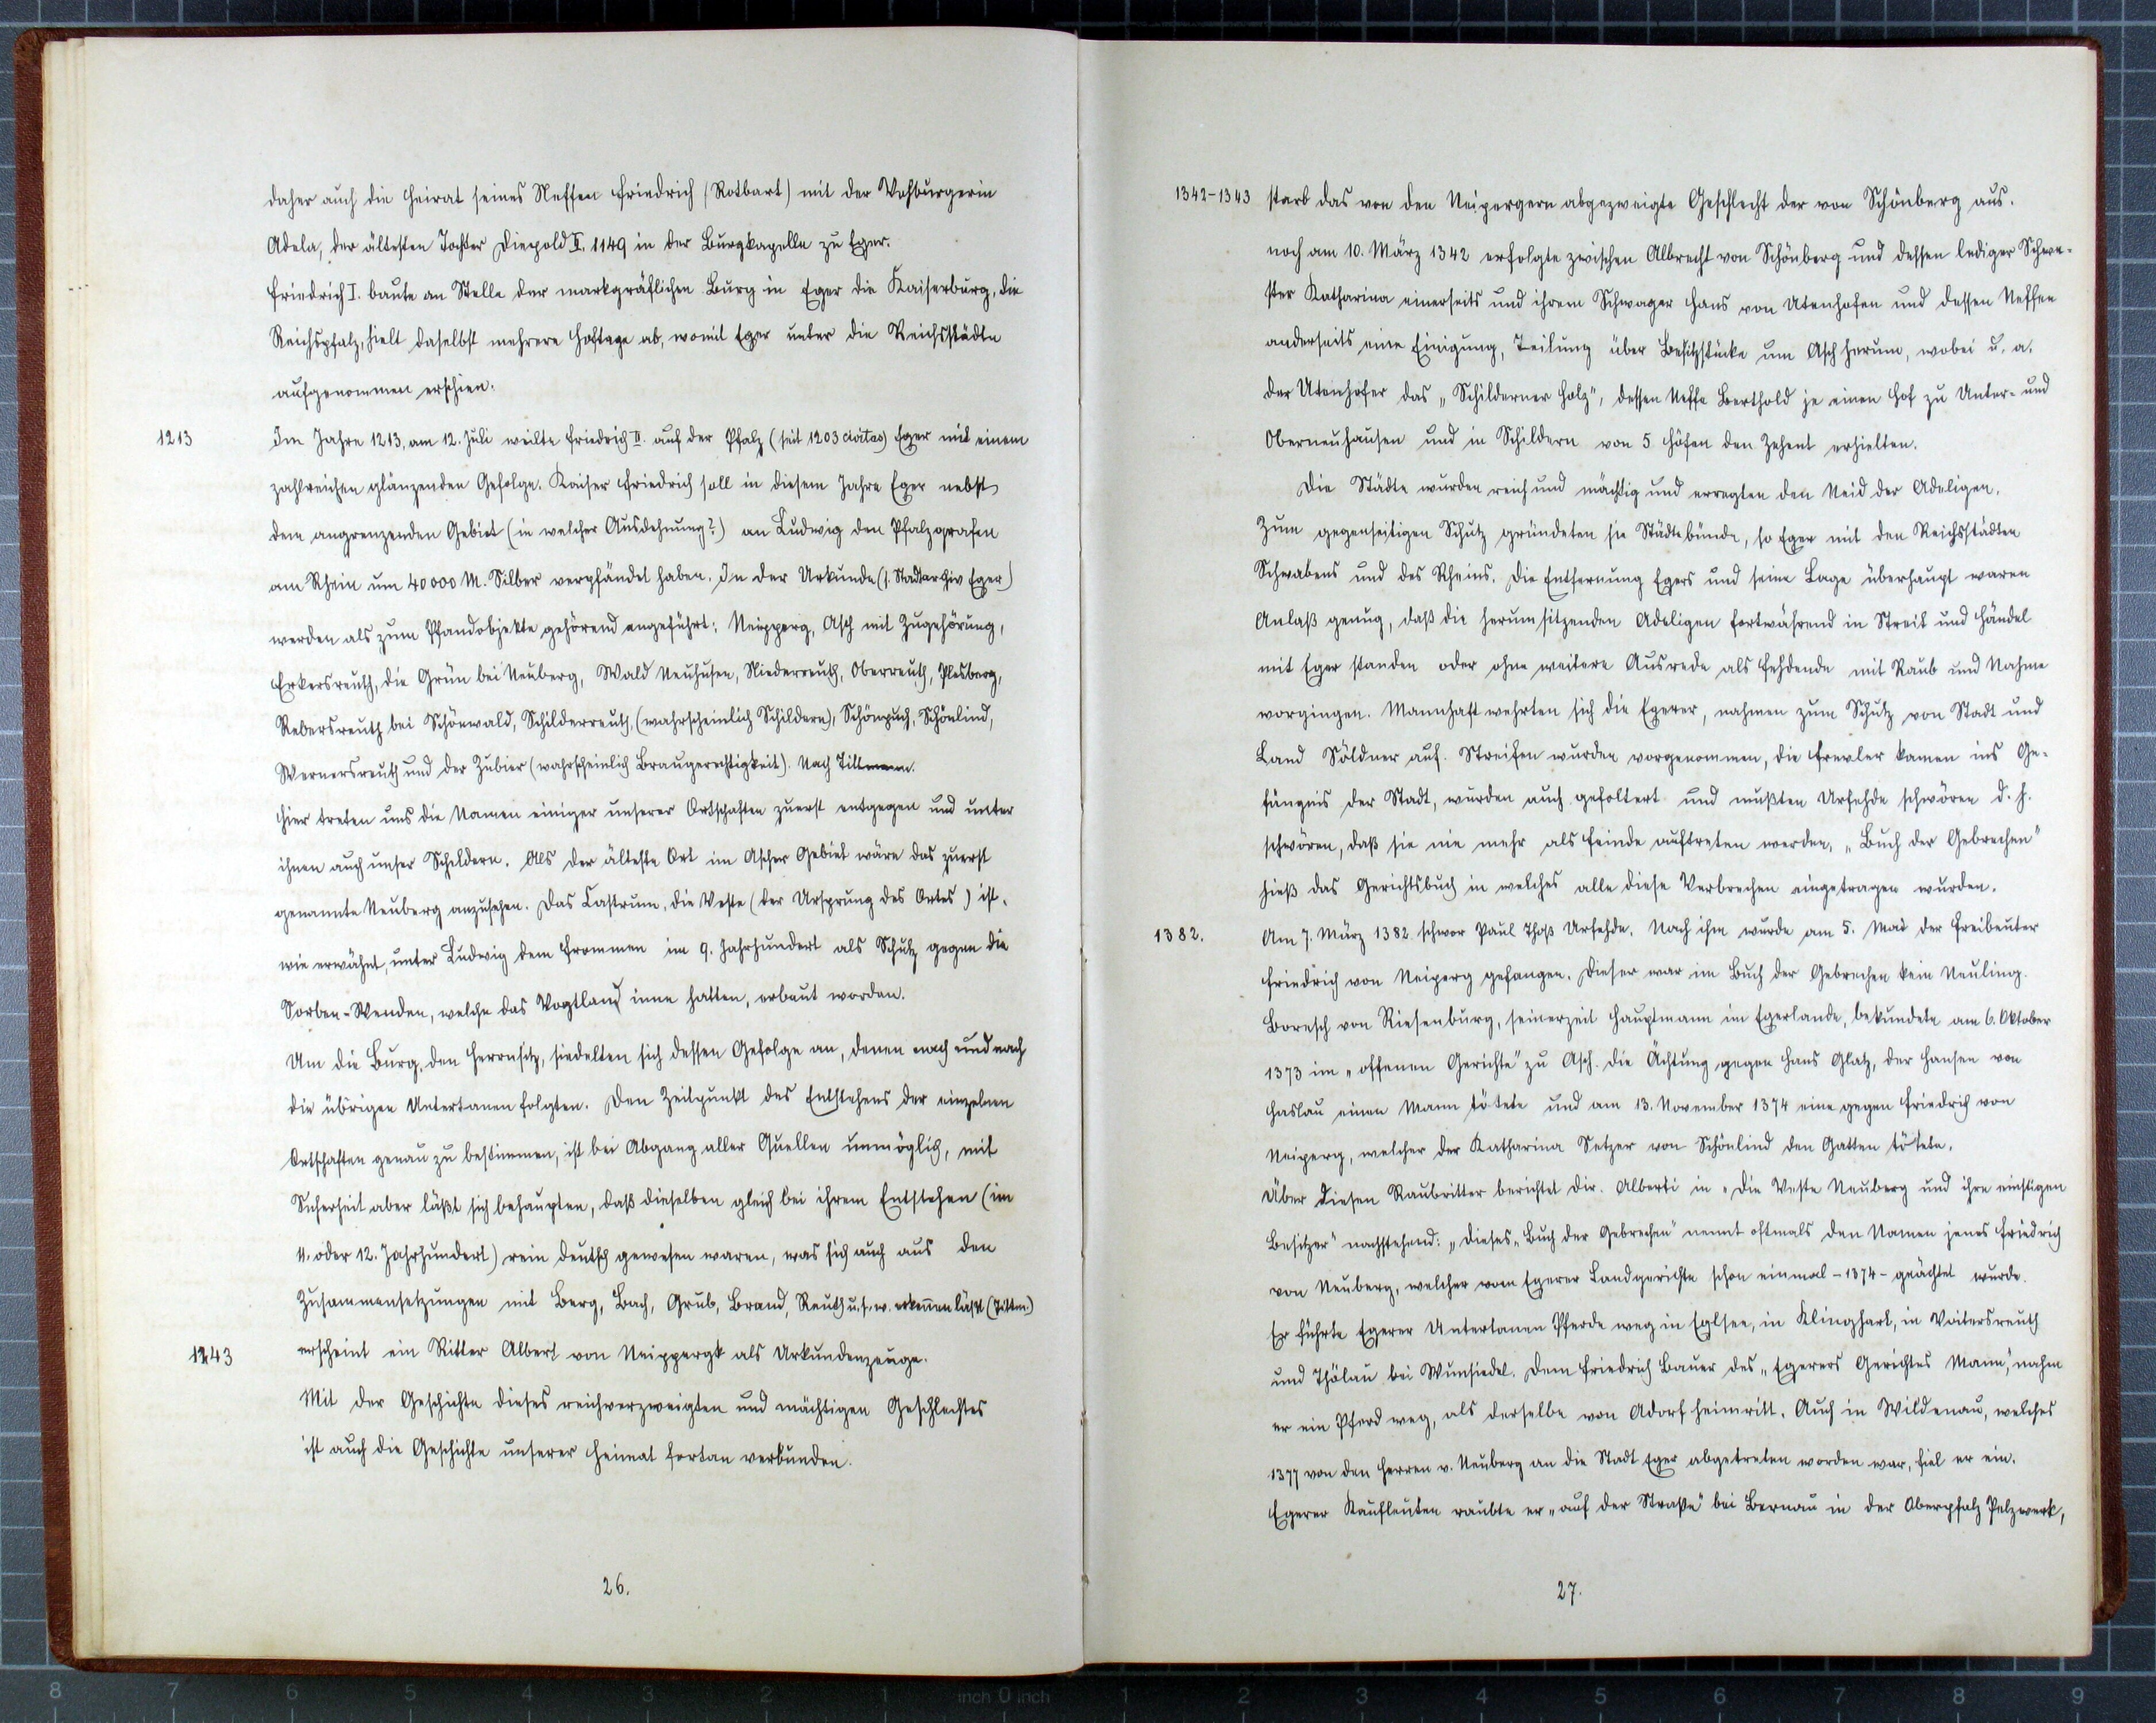 daher auch die Heirat seines Neffen Friedrich (Rotbart) mit der Vohburgerin
Adela, der ältesten Tochter Diepold II. 1149 in der Burgkapelle zu Eger.
Friedrich I. baute an Stelle der markgräflichen Burg in Eger die Kaiserburg, die
Reichspfalz, hielt daselbst mehrere Hoftage ab, womit Eger unter die Reichsstädte
aufgenommen erschien.
1213 Im Jahre 1213, am 12. Juli weilte Friedrich II. auf der Pfalz (seit 1203 civitas) Eger mit einem
zahlreichen glänzenden Gefolge. Kaiser Friedrich soll in diesem Jahre Eger nebst
dem angrenzenden Gebiet (in welcher Ausdehnung?) an Ludwig den Pfalzgrafen
am Rhein um 40000 M. Silber verpfändet haben. In der Urkunde (s. Stadtarchiv Eger)
werden als zum Pfandobjekte gehörend angeführt: Neipperg, Asch mit Zugehörung,
Erkersreuth, die Grün bei Neuberg, Wald Neuhusen, Niederreuth, Oberreuth, Plesberg,
Rebersreuth bei Schönwald, Schilderreuth, (wahrscheinlich Schildern), Schönpuch, Schönlind,
Wernersreuth und der Zubier (wahrscheinlich Braugerechtigkeit). Nach Tittmann.
Hier treten uns die Namen einiger unserer Ortschaften zuerst entgegen und unter
ihnen auch unser Schildern. Als der älteste Ort im Ascher Gebiet wäre das zuerst
genannte Neuberg anzusehen. Das Castrum, die Veste (der Ursprung des Ortes) ist,
wie erwähnt, unter Ludwig dem Frommen im 9. Jahrhundert als Schutz gegen die
Sorben-Wenden, welche das Vogtland inne hatten, erbaut worden.
Um die Burg, den Herrnsitz, siedelten sich dessen Gefolge an, denen nach und nach
die übrigen Untertanen folgten. Den Zeitpunkt des Entstehens der einzelnen
Ortschaften genau zu bestimmen, ist bei Abgang aller Quellen unmöglich, mit
Sicherheit aber läßt sich behaupten, daß dieselben gleich bei ihrem Entstehen (im
11. oder 12. Jahrhundert) rein deutsch gewesen waren, was sich auch aus den
Zusammensetzungen mit Berg, Bach, Grub, Brand, Reuth u.s.w. erkennen läßt (Tittm.)
1243 erscheint ein Ritter Albert von Neippergk als Urkundenzeuge.
Mit der Geschichte dieses reichverzweigten und mächtigen Geschlechtes
ist auch die Geschichte unserer Heimat fortan verbunden.
26.
1342-1343 starb das von den Neipergern abgezweigte Geschlecht der von Schönberg aus.
noch am 10. März 1342 erfolgte zwischen Albrecht von Schönberg und dessen lediger Schwe-
ster Katharina einerseits und ihrem Schwager Hans von Utenhofen und dessen Neffen
anderseits eine Einigung, Teilung über Besitzstücke um Asch herum, wobei u. a.
der Utenhofer das „Schilderner Holz", dessen Neffe Berthold je einen Hof zu Unter- und
Oberneuhausen und in Schildern von 5 Höfen den Zehent erhielten.
Die Städte wurden reich und mächtig und erregten den Neid der Adeligen.
Zum gegenseitigen Schutz gründeten sie Städtebünde, so Eger mit den Reichsstädten
Schwabens und des Rheins. Die Entfernung Egers und seine Lage überhaupt waren
Anlaß genug, daß die herumsitzenden Adeligen fortwährend in Streit und Händel
mit Eger standen oder ohne weitere Ausrede als Fehdende mit Raub und Nahme
vorgingen. Mannhaft wehrten sich die Egerer, nahmen zum Schutz von Stadt und
Land Söldner auf. Streifen wurden vorgenommen, die Frevler kamen ins Ge-
fängnis der Stadt, wurden auch gefoltert und mußten Urfehde schwören d. h.
schwören, daß sie nie mehr als Feinde auftreten werden, „Buch der Gebrechen"
hieß das Gerichtsbuch in welches alle diese Verbrechen eingetragen wurden.
1382. Am 7. März 1382 schwor Paul Thoß Urfehde. Nach ihm wurde am 5. Mai der Freibeuter
Friedrich von Neiperg gefangen. Dieser war im Buch der Gebrechen kein Neuling.
Boresch von Riesenburg, seinerzeit Hauptmann im Egerlande, bekundete am 6. Oktober
1373 im „offenen Gerichte" zu Asch. die Ächtung gegen Hans Glatz, der Hansen von
Haslau einen Mann tötete und am 13. November 1374 eine gegen Friedrich von
Neiperg, welcher der Katharina Setzer von Schönlind den Gatten tötete.
Über diesen Raubritter berichtet Dir. Alberti in „Die Veste Neuberg und ihre einstigen
Besitzer" nachstehend: „Dieses „Buch der Gebrechen" nennt oftmals den Namen jenes Friedrich
von Neuberg, welcher vom Egerer Landgerichte schon einmal - 1374 - geächtet wurde.
Er führte Egerer Untertanen Pferde weg in Eglsee, in Klinghart, in Voitersreuth
und Thölau bei Wunsiedel. Dem Friedrich Bauer des „Egerers Gerichtes Mann", nahm
er ein Pferd weg, als derselbe von Adorf heimritt. Auch in Wildenau, welches
1377 von den Herren v. Neuberg an die Stadt Eger abgetreten worden war, fiel er ein.
Egerer Kaufleuten raubte er „auf der Straße" bei Bernau in der Oberpfalz Pelzwerk,
27.
8 7 6 5 4 3 2 1 inch 0 inch 1 2 3 4 5 6 7 8 9